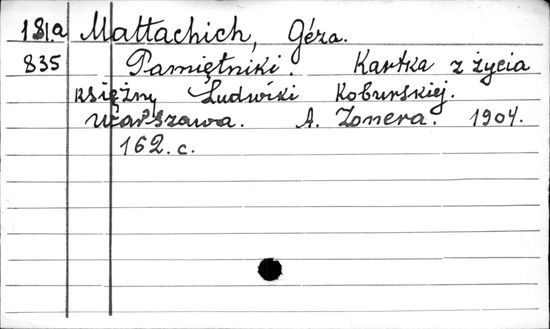 181a Mattachich, Géza.
835 Pamiętniki. Kartka z życia
księżny Ludwiki Koburskiej.
Warszawa. A. Zonera. 1904.
162.c.